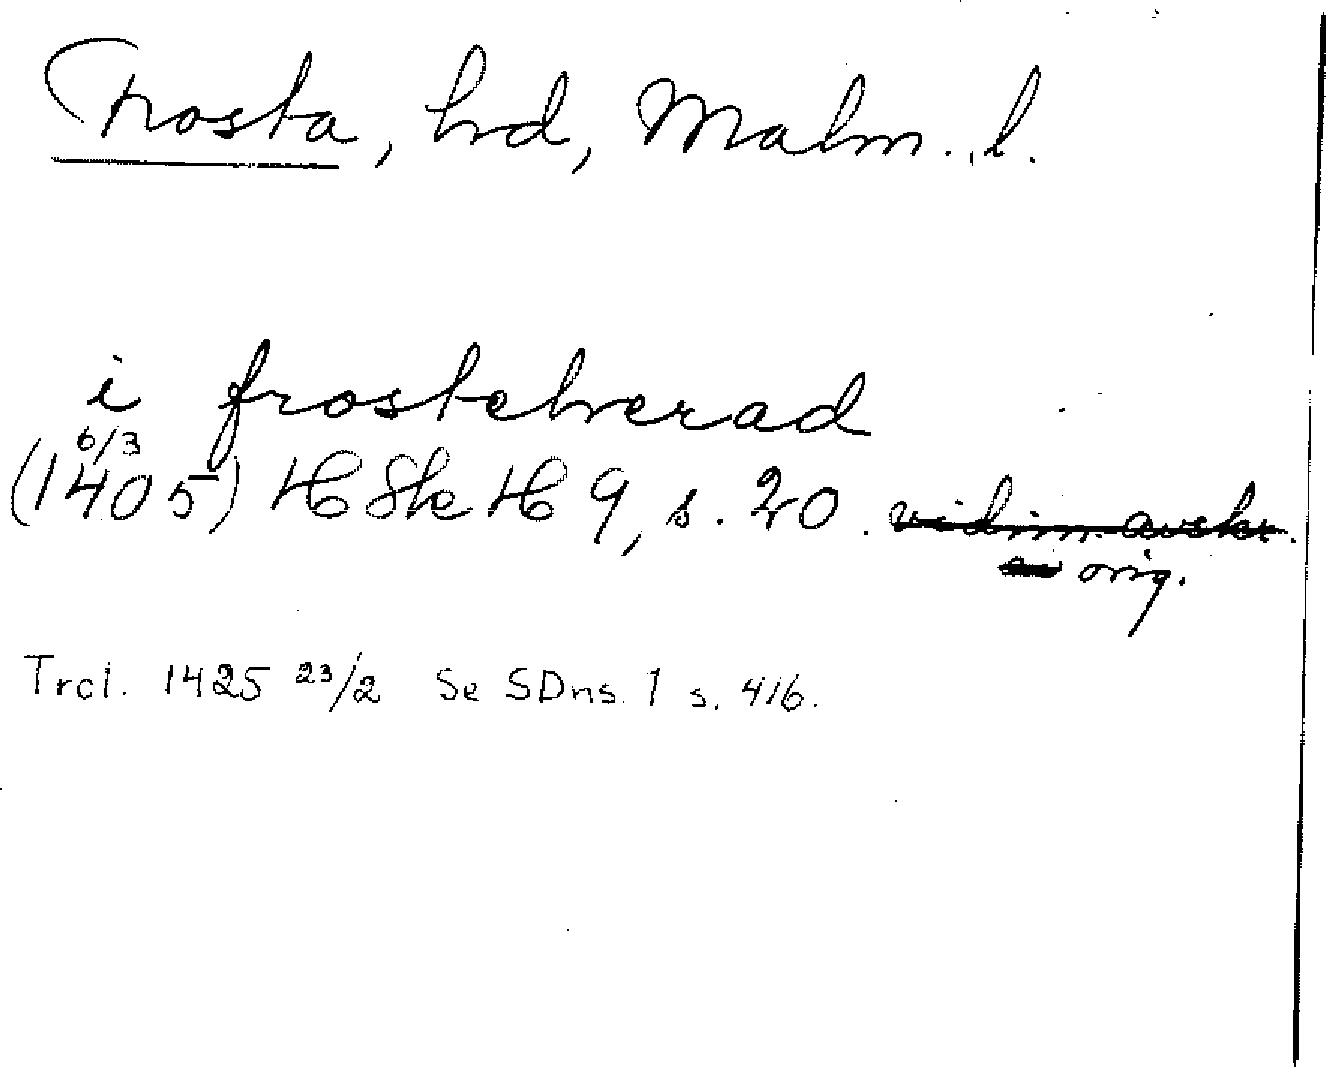 Frosta, hd, Malm. l.
i frosteherad
6/3
(1405) HSkH 9, s. 20. vidim. avskr.
orig.
Trol. 1425 23/2 Se SDns. 1 s. 416.